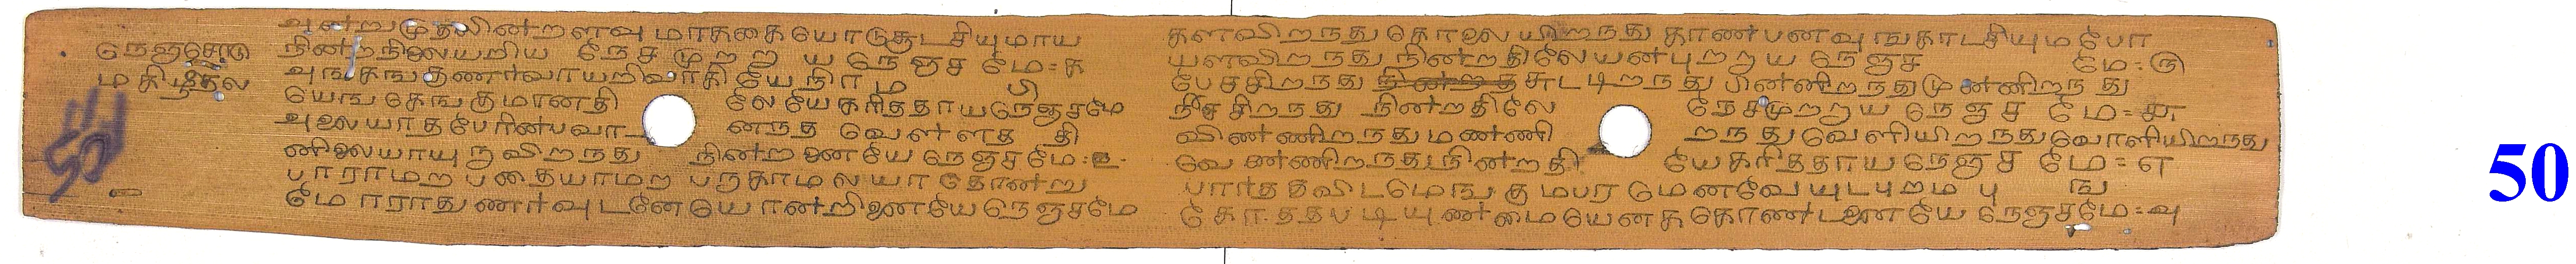 நெஞ்சோடு
மகிழ்தல
50
அன்றுமுதலின்றளவு மாக்கையோடுசூடசியுமாய
நின்றநிலையறிய நேசமுறறு ய நெஞச மே = க
அஙகஙகுணர்வாயறிவாகி யேநிரம பி
யெஙகெஙகுமானதி லேயேகரித்தாயநெஞசமே
அலையாதபேரின்பவா னநத வெள்ளத தி
ணிலையாயுருவிறநது நின்றனையே நெஞசமே = உ
பாராமற பதையாமற பருகாமல யாதொன்று
மோராதுணர்வுடனேயொன்றினையேநெஞசமே
களவிறநது கொலை யிறநது காண்பனவுஙகாடசியுமபோ
யளவிறநது நின்றதிலேயன்புறறுய நெஞச மே = ரு
பேசசிறநது சுடடிறநது பின்னிறநதுமுன்னிறநது
நீசசிறநது நின்றதிலே நேசமுறறுய நெஞச மே = சு
விண்ணிறநது மண்ணி றநதுவெளியிறநதுவொளியிறநது
வெண்ணிறநதுநின்றதி யேகரித்தாய நெஞச மே = எ
பார்த்தவிடமெஙகு மபர டுமெனவேயுடபுறமபு ங
கோ ததபடியுண்மையெனக கொண்டனையே நெஞசமே = அ
50